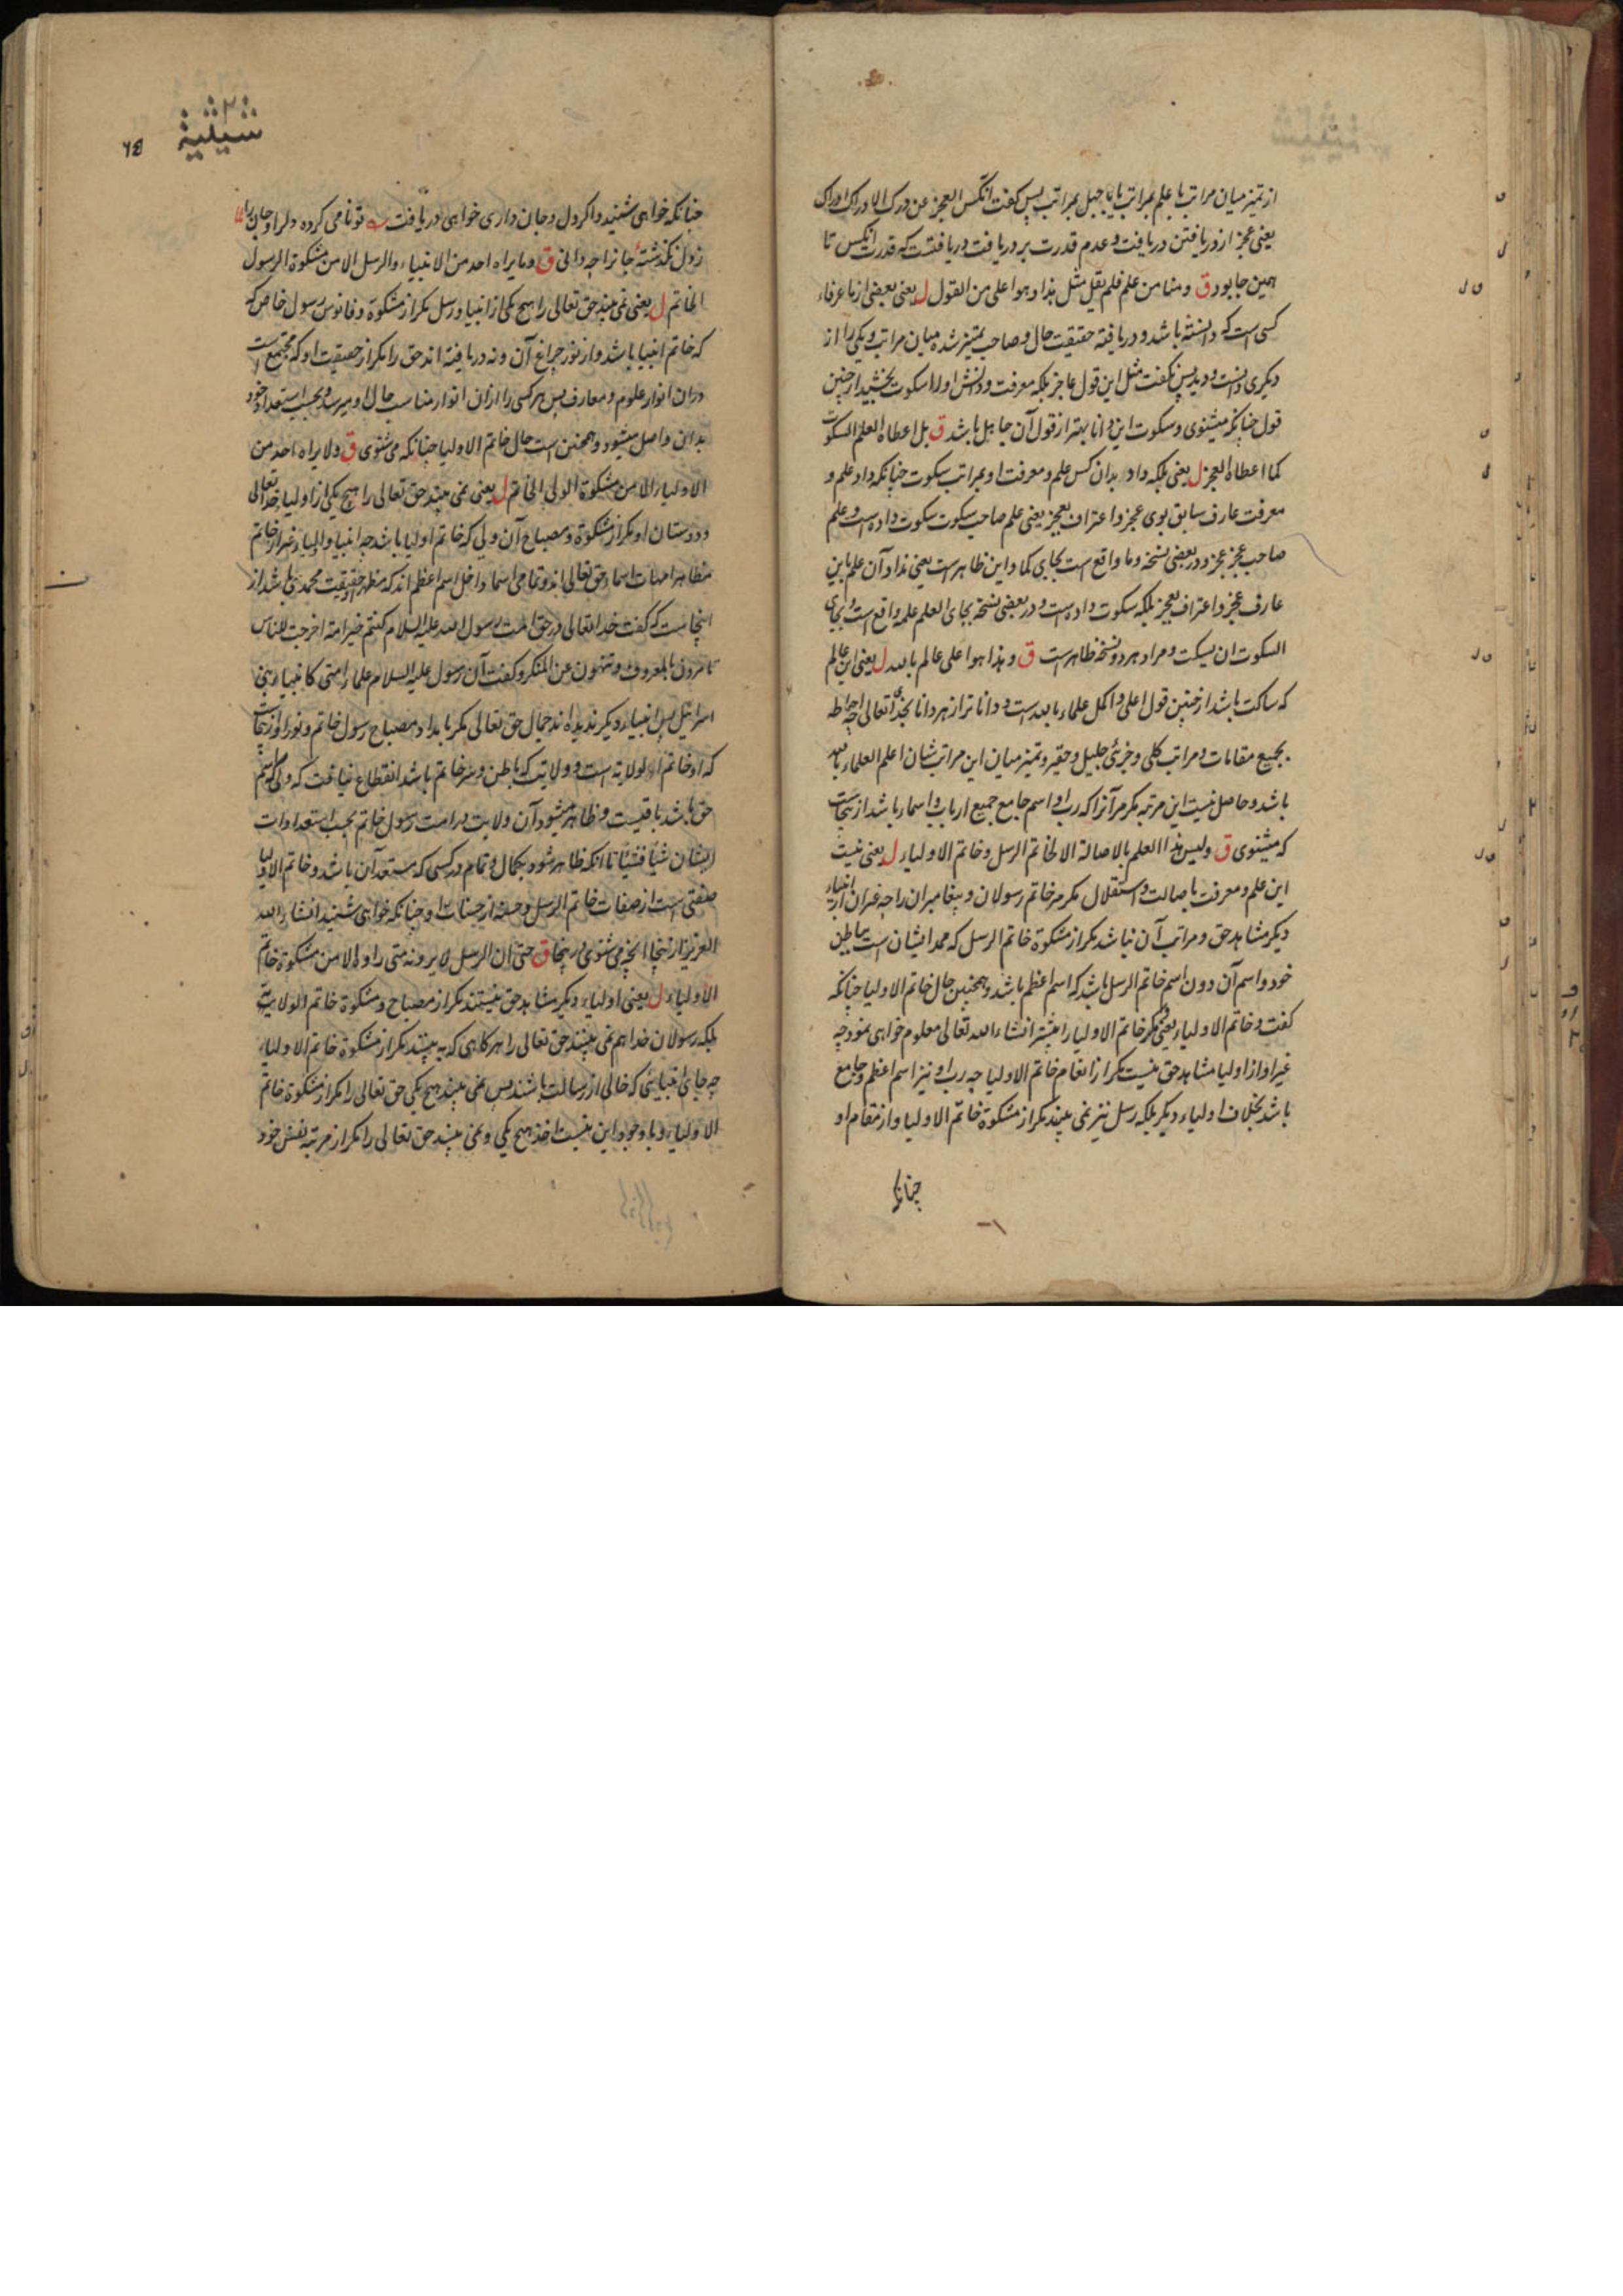 از تمیز میان مراتب با علم بمراتب یا با جهل بمراتب پس گفت انکس العجز عن درک الادراک ادراک
یعنی عجز از دریافتن دریافت و عدم قدرت بر دریافت دریافتست که قدرت انکس تا
همین جا بود ق ومنا من علم فلم یقل مثل هذا وهو اعلی من القول ل یعنی بعضی از ما عرفاء
کسی است که دانسته باشد و دریافته حقیقت حال و صاحب تمیز شده میان مراتب و یکی را از
دیگری دانست و دید پس نکفت مثل این قول عاجز بلکه معرفت و دانش او را سکوت بخشید از چنین
قول چنانکه میشنوی و سکوت این دانا بهتر از قول آن جاهل باشد ق بل اعطاه العلم السکوت
کما اعطاه العجز ل یعنی بلکه داد بدان کس علم و معرفت او بمراتب سکوت چنانکه داد علم و
معرفت عارف سابق بوی عجز و اعتراف بعجز یعنی علم صاحب سکوت سکوت داده است و علم
صاحب عجز عجز و در بعضی نسخه وما واقع است بجای کما و این ظاهر است یعنی نداد آن علم باین
عارف عجز و اعتراف بعجز بلکه سکوت داده است و در بعضی نسخه بجای العلم علمه واقع است و بجای
السکوت ان یسکت و مراد هر دو نسخه ظاهر است ق وهذا هو اعلی عالم بالله ل یعنی این عالم
که ساکت باشد از چنین قول اعلی و اکمل علماء بالله است و دانا تر از هر دانا بخدای تعالی چه احاطه
بجمیع مقامات و مراتب کلی و جزئی جلیل و حقیر و تمیز میان این مراتب شان اعلم العلماء بالله
باشد و حاصل نیست این مرتبه مکر مر آنرا که رب او اسم جامع جمیع ارباب و اسماء باشد از ینجاست
که میشنوی ق ولیس هذا العلم بالاصالة الا لخاتم الرسل وخاتم الاولیاء ل یعنی نیست
این علم و معرفت باصالت و استقلال مکر مر خاتم رسولان و پیغامبران را چه غیر ان از انبیاء
دیکر مشاهد حق و مراتب آن نباشد مکر از مشکوة خاتم الرسل که ممد ایشان است بباطن
خود و اسم آن دون اسم خاتم الرسل باشد که اسم اعظم باشد و همچنین حال خاتم الاولیا چنانکه
کفت و خاتم الاولیاء یعنی و مکر خاتم الاولیا را بیشتر انشاء الله تعالی معلوم خواهی نمود چه
غیر او از اولیا مشاهد حق نیست مکر از انعام خاتم الاولیا چه رب او نیز اسم اعظم و جامع
باشد بخلاف اولیاء دیکر بلکه رسل نیز نمی بینند مکر از مشکوة خاتم الاولیا و از مقام او
چنانکه
شیثیة
۶۵
چنانکه خواهی شنید و اکر دل و جان داری خواهی دریافت تو نامی کرده دلرا و جان را
ز دل نگذشته جانرا چه دانی ق وما یراه احد من الانبیاء والرسل الا من مشکوة الرسول
الخاتم ل یعنی نمی بیند حق تعالی را هیچ یکی از انبیا و رسل مکر از مشکوة و فانوس رسول خاص که
که خاتم انبیا باشد و از نور چراغ آن و نه دریافته اند حق را مکر از حقیقت او که مجتمع است
دران انوار علوم و معارف پس هر کسی را ازان انوار مناسب حال او میرسد و بحسب استعداد خود
بدان واصل میشود و همچنین است حال خاتم الاولیا چنانکه می شنوی ق ولا یراه احد من
الاولیاء الا من مشکوة الولی الخاتم ل یعنی نمی بیند حق تعالی را هیچ یکی از اولیا خدا تعالی
و دوستان او مکر از مشکوة و مصباح آن ولی که خاتم اولیا باشد چه انبیا و اولیاء غیر از خاتم
مظاهر امهات اسماء حق تعالی اند و تمامی اسما داخل اسم اعظم اند که مظهر او حقیقت محمدی باشد از
اینجاست که گفت خدا تعالی در حق امت رسول الله علیه السلام کنتم خیر امة اخرجت للناس
تامرون بالمعروف وتنهون عن المنکر و کفت آن رسول علیه السلام علماء امتی کانبیاء بنی
اسرائیل پس انبیاء دیکر ندیده اند جمال حق تعالی مکر بامداد مصباح رسول خاتم و نور او از ینجاست
که او خاتم الولایة است و ولایت که باطن و سر خاتم باشد انقطاع نیافت که ولی اسم
حق باشد باقیست و ظاهر میشود آن ولایت در امت رسول خاتم بحسب استعدادات
ایشان شیئا فشیئا تا انکه ظاهر شود بکمال و تمام در کسی که مستعد آن باشد و خاتم الاولیا
صفتی است از صفات خاتم الرسل و حسنه از حسنات او چنانکه خواهی شنید انشاء الله
العزیز از ینجا انچه می شنوی در ینجا ق حتی ان الرسل لا یرونه متی راوه الا من مشکوة خاتم
الاولیاء ل یعنی اولیاء دیکر مشاهد حق نیستند مکر از مصباح و مشکوة خاتم الولایت
بلکه رسولان خدا هم نمی بینند حق تعالی را هر کاهی که به بینند مکر از مشکوة خاتم الاولیاء
چه جای انبیائی که خالی از رسالت باشند پس نمی بیند هیچ یکی حق تعالی را مکر از مشکوة خاتم
الاولیاء و با وجود این نیست اخذ هیچ یکی و نمی بیند حق تعالی را مکر از مرتبه نفس خود